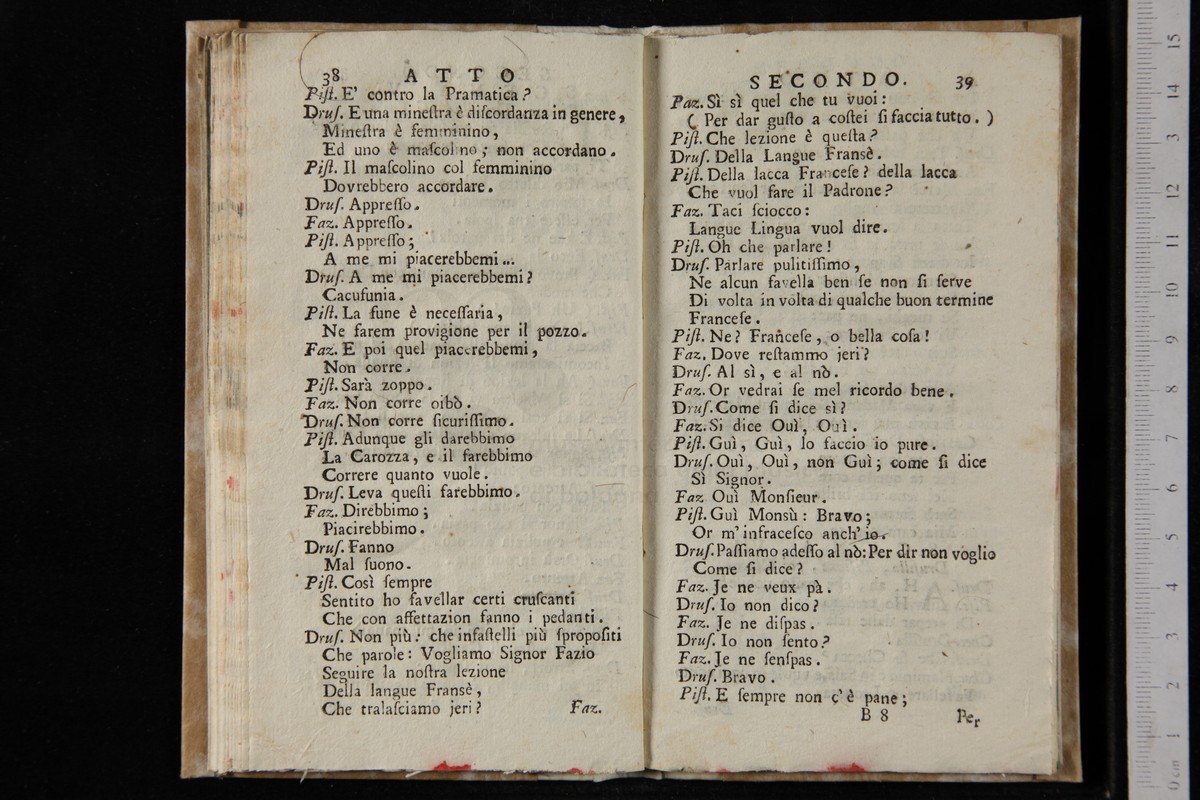 38 ATTO
Piſt. E' contro la Pramatica?
Druſ. E una mineſtra è diſcordanza in genere,
Mineſtra è femminino,
Ed uno è maſcolino; non accordano.
Piſt. Il maſcolino col femminino
Dovrebbero accordare.
Druſ. Appreſſo.
Faz. Appreſſo.
Piſt. Appreſſo;
A me mi piacerebbemi...
Druſ. A me mi piacerebbemi?
Cacufunia.
Piſt. La fune è neceſſaria,
Ne farem provigione per il pozzo.
Faz. E poi quel piacerebbemi,
Non corre.
Piſt. Sarà zoppo.
Faz. Non corre oibò.
Druſ. Non corre ſicuriſſimo.
Piſt. Adunque gli darebbimo
La Carozza, e il farebbimo
Correre quanto vuole.
Druſ. Leva queſti farebbimo.
Faz. Direbbimo;
Piacirebbimo.
Druſ. Fanno
Mal ſuono.
Piſt. Così ſempre
Sentito ho favellar certi cruſcanti
Che con affettazion fanno i pedanti.
Druſ. Non più: che infaſtelli più ſpropoſiti
Che parole: Vogliamo Signor Fazio
Seguire la noſtra lezione
Della langue Fransè,
Che tralaſciamo jeri? Faz.
SECONDO. 39
Faz. Sì sì quel che tu vuoi:
( Per dar guſto a coſtei ſi faccia tutto. )
Piſt. Che lezione è queſta?
Druſ. Della Langue Fransè.
Piſt. Della lacca Franceſe? della lacca
Che vuol fare il Padrone?
Faz. Taci ſciocco:
Langue Lingua vuol dire.
Piſt. Oh che parlare!
Druſ. Parlare pulitiſſimo,
Ne alcun favella ben ſe non ſi ſerve
Di volta in volta di qualche buon termine
Franceſe.
Piſt. Ne? Franceſe, o bella coſa!
Faz. Dove reſtammo jeri?
Druſ. Al sì, e al nò.
Faz. Or vedrai ſe mel ricordo bene.
Druſ. Come ſi dice sì?
Faz. Si dice Ouì, Ouì.
Piſt. Guì, Guì, lo faccio io pure.
Druſ. Ouì, Ouì, non Guì; come ſi dice
Sì Signor.
Faz Ouì Monſieur.
Piſt. Guì Monsù: Bravo;
Or m' infraceſco anch' io.
Druſ. Paſſiamo adeſſo al nò: Per dir non voglio
Come ſi dice?
Faz. Je ne veux pà.
Druſ. Io non dico?
Faz. Je ne diſpas.
Druſ. Io non ſento?
Faz. Je ne ſenſpas.
Druſ. Bravo.
Piſt. E ſempre non c'è pane;
B 8 Per